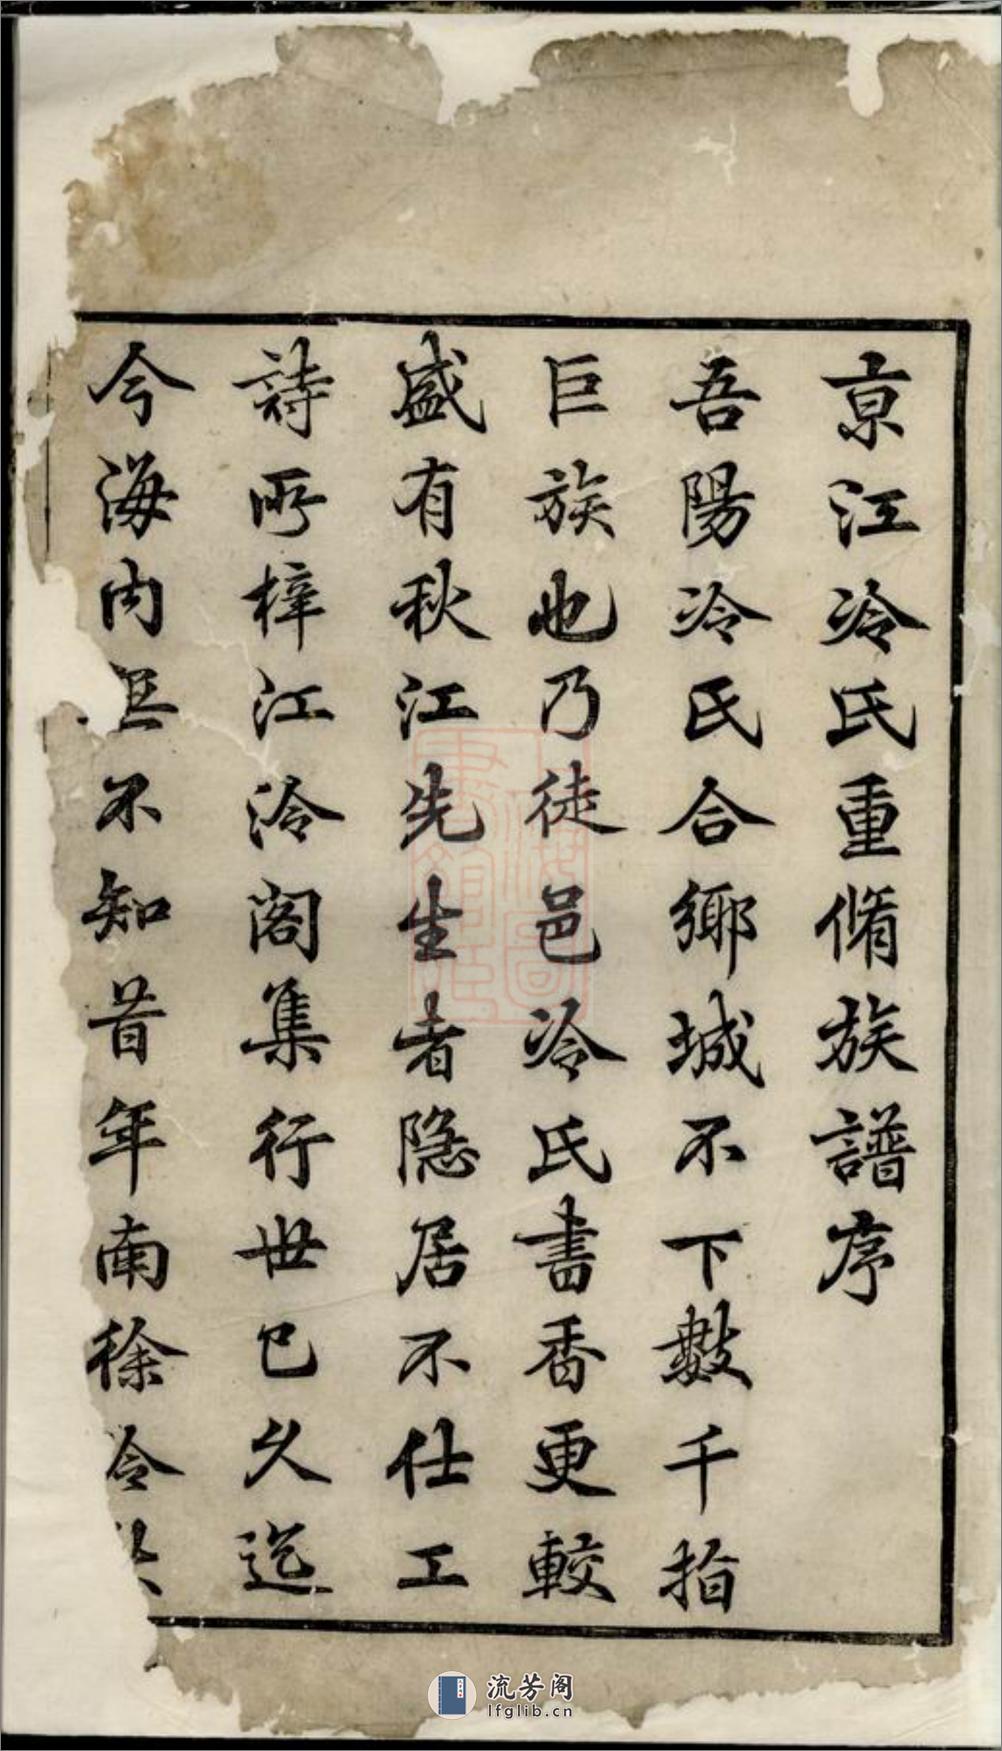 京江冷氏重脩族譜序
吾陽冷氏合鄉城不下數千指
巨族也乃徒邑冷氏書香更較
盛有秋江先生者隐居不仕工
詩所梓江泠阁集行世已久迄
今海内且不知昔年南徐冷
上海圖書館藏
流芳阁
lfglib.cn